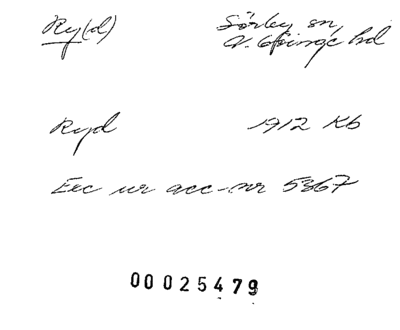 Ry(d) Sörby sn,
V. Göinge hd
Ryd 1912 Kb
Exc ur acc-nr 5367
00025479